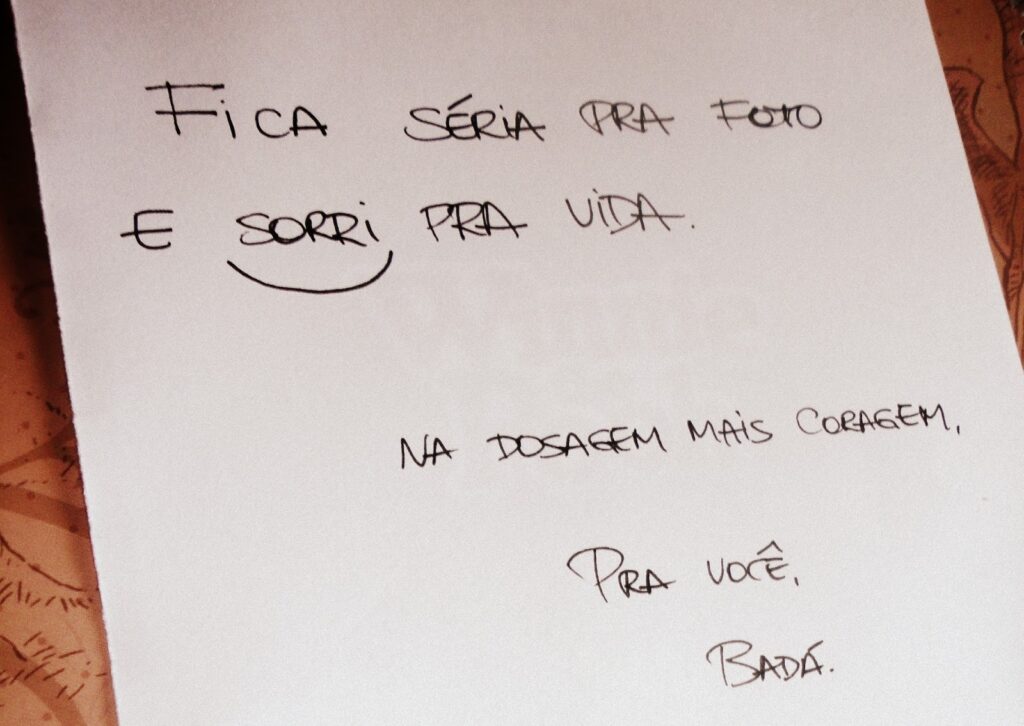 FiCA SÉRIA PRA FOTO
E SORRi PRA ViDA.
NA DOSAGEM MAiS CORAGEM,
PRA VOCÊ,
BADÁ.